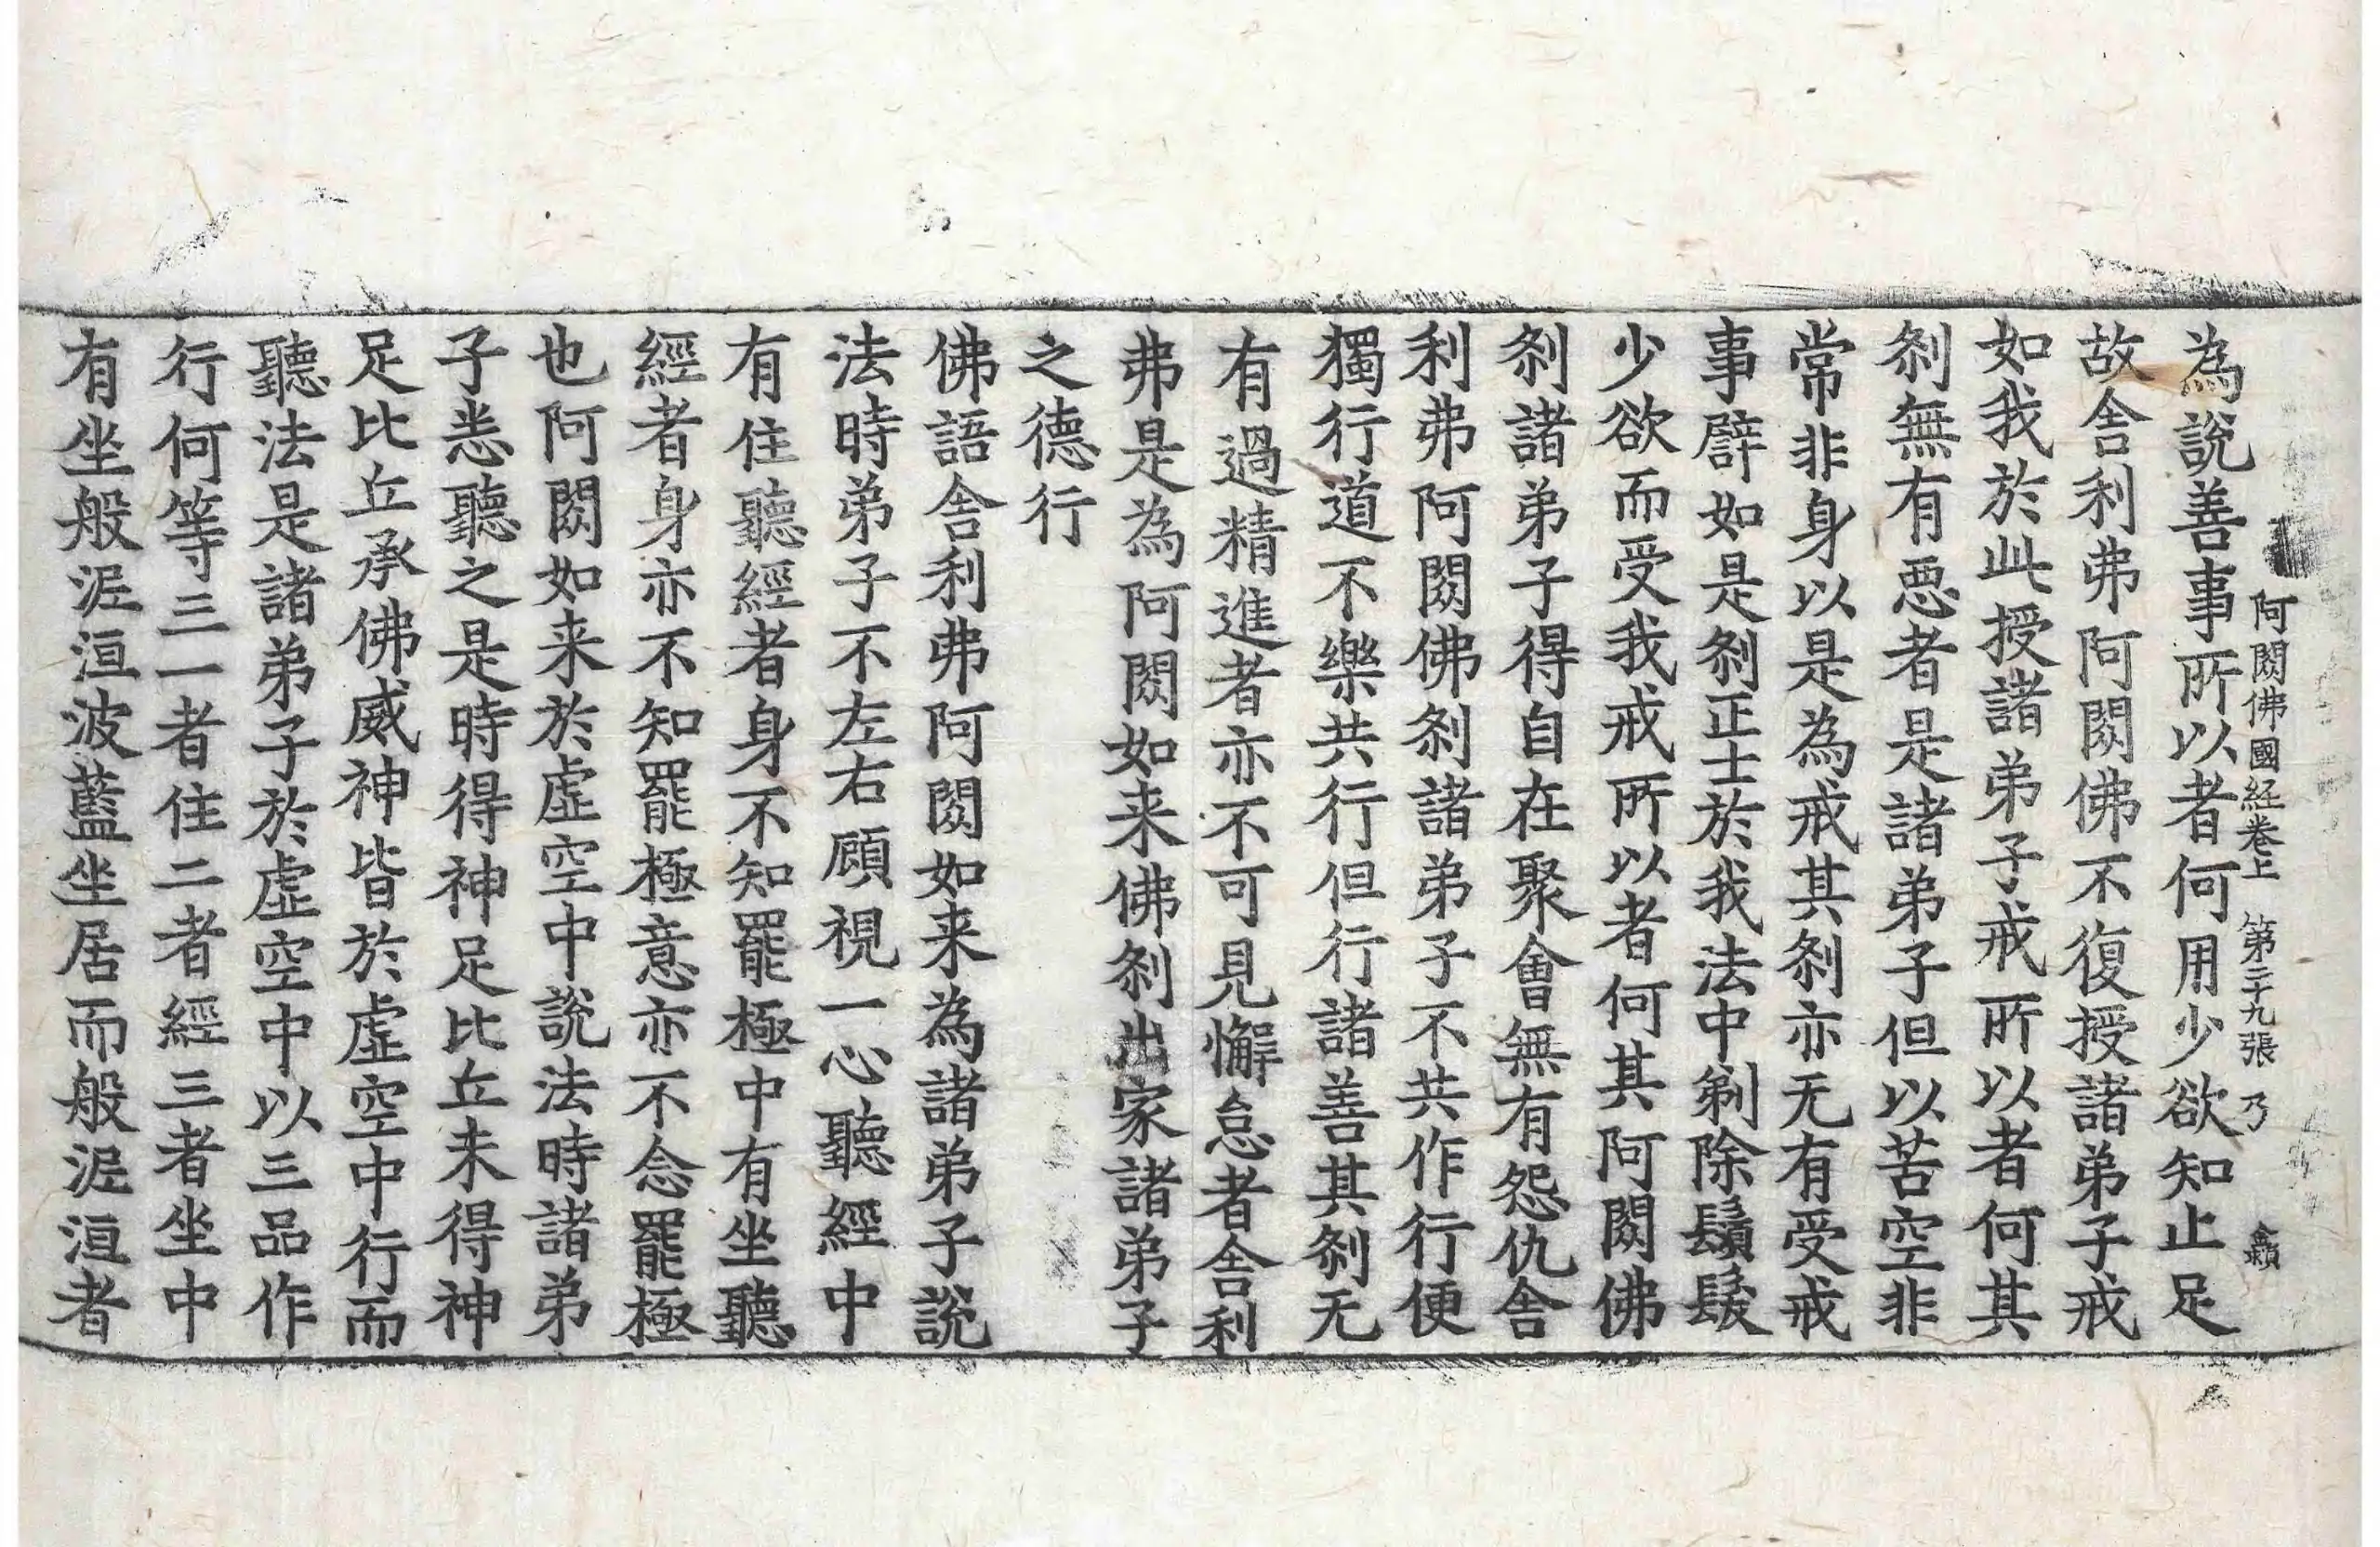 阿閦佛國経卷上 第二十九張 乃
為說善事所以者何用少欲知止足
故舍利弗阿閦佛不復授諸弟子戒
如我於此授諸弟子戒所以者何其
剎無有惡者是諸弟子但以苦空非
常非身以是為戒其剎亦无有受戒
事譬如是剎正士於我法中剃除鬚髮
少欲而受我戒所以者何其阿閦佛
剎諸弟子得自在聚會無有怨仇舍
利弗阿閦佛剎諸弟子不共作行便
獨行道不樂共行但行諸善其剎无
有過精進者亦不可見懈怠者舍利
弗是為阿閦如来佛剎出家諸弟子
之德行
佛語舍利弗阿閦如来為諸弟子說
法時弟子不左右顧視一心聽經中
有住聽經者身不知罷極中有坐聽
經者身亦不知罷極意亦不念罷極
也阿閦如来於虛空中說法時諸弟
子悉聽之是時得神足比丘未得神
足比丘承佛威神皆於虛空中行而
聽法是諸弟子於虛空中以三品作
行何等三一者住二者經三者坐中
有坐般泥洹波藍坐居而般泥洹者